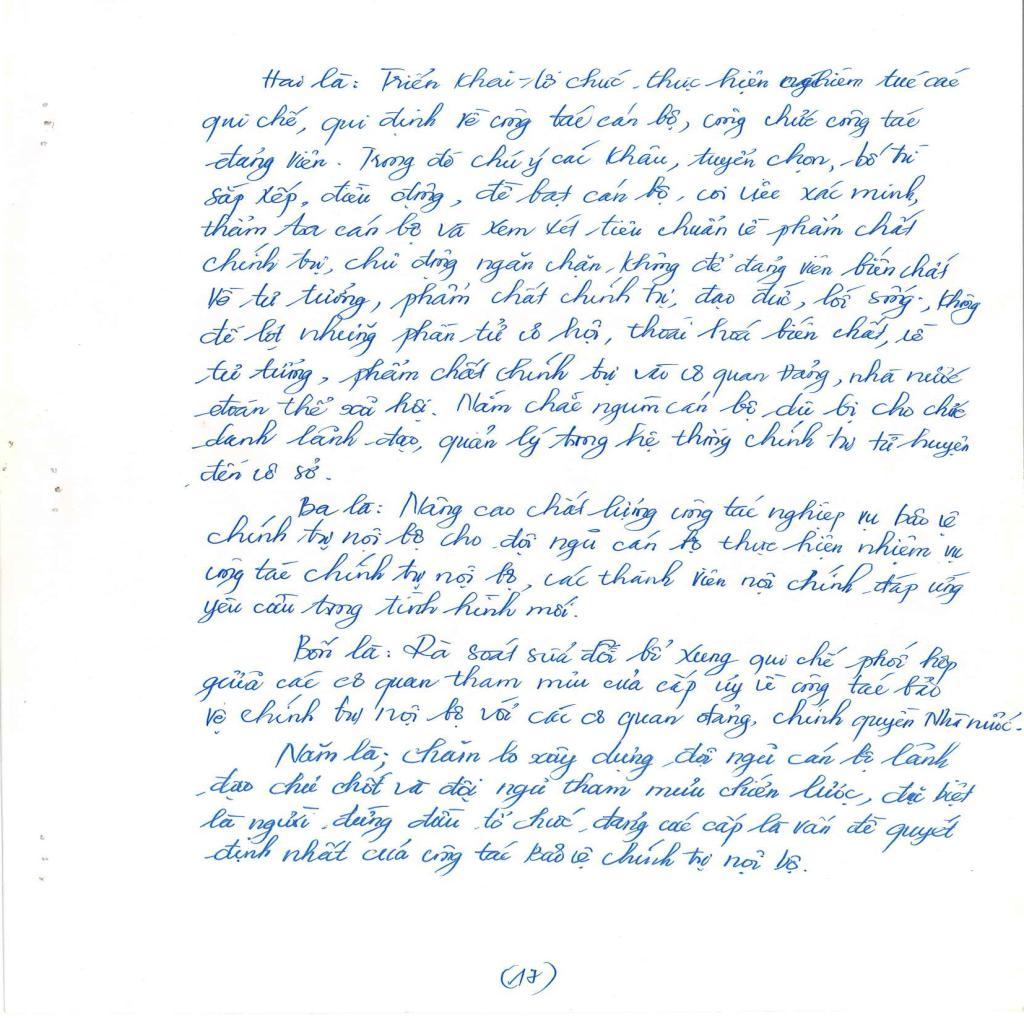 Hai là: Triển khai tổ chức thực hiện nghiêm túc các
qui chế, qui định về công tác cán bộ, công chức công tác
đảng viên. Trong đó chú ý các khâu, tuyển chọn, bố trí
sắp xếp, điều động, đề bạt cán bộ, coi việc xác minh,
thẩm tra cán bộ và xem xét tiêu chuẩn về phẩm chất
chính trị, chủ động ngăn chặn, không để đảng viên biến chất
về tư tưởng, phẩm chất chính trị, đạo đức, lối sống, không
để lọt những phần tử cơ hội, thoái hoá biến chất, về
tư tưởng, phẩm chất chính trị vào cơ quan Đảng, nhà nước
đoàn thể xã hội. Nắm chắc nguồn cán bộ dự bị cho chức
danh lãnh đạo, quản lý trong hệ thống chính trị từ huyện
đến cơ sở.
Ba là: Nâng cao chất lượng công tác nghiệp vụ bảo vệ
chính trị nội bộ cho đội ngũ cán bộ thực hiện nhiệm vụ
công tác chính trị nội bộ, các thành viên nội chính đáp ứng
yêu cầu trong tình hình mới.
Bốn là: Rà soát sửa đổi bổ xung qui chế phối hợp
giữa các cơ quan tham mưu của cấp ủy về công tác bảo
vệ chính trị nội bộ với các cơ quan đảng, chính quyền Nhà nước.
Năm là; chăm lo xây dựng đội ngũ cán bộ lãnh
đạo chủ chốt và đội ngũ tham mưu chiến lược, đặc biệt
là người đứng đầu tổ chức đảng các cấp là vấn đề quyết
định nhất của công tác bảo vệ chính trị nội bộ.
(17)